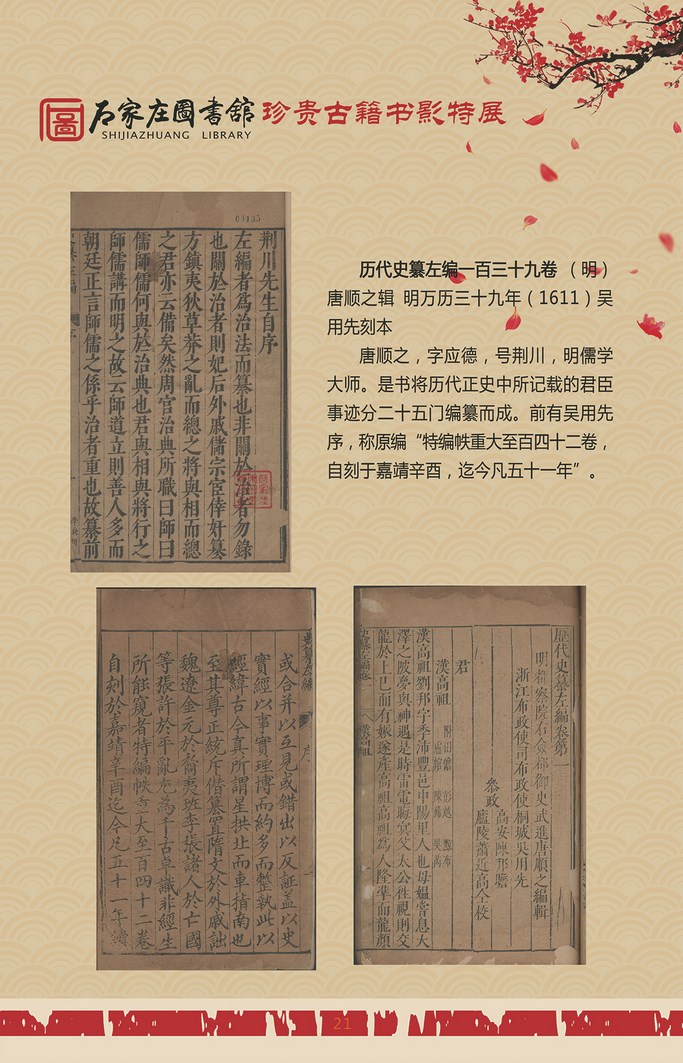 石家庄圖書舘珍贵古籍书影特展
SHIJIAZHUANG LIBRARY
荆川先生自序
左編者為治法而纂也非關於治者勿錄
也關於治者則妃后外戚儲宗宦倖奸篡
方鎮夷狄草莽之亂而總之將與相而總
之君亦云備矣然周官治典所職曰師曰
儒師儒何與於治典也君與相與將行之
師儒講而明之故云師道立則善人多而
朝廷正言師儒之係乎治者重也故纂前
历代史纂左编一百三十九卷 （明）
唐顺之辑 明万历三十九年（1611）吴
用先刻本
唐顺之，字应德，号荆川，明儒学
大师。是书将历代正史中所记载的君臣
事迹分二十五门编纂而成。前有吴用先
序，称原编“特编帙重大至百四十二卷，
自刻于嘉靖辛酉，迄今凡五十一年”。
或合并以互見或錯出以反証盖以史
實經以事實理博而約多而整執此以
經緯古今真所謂星拱北而車指南也
至其尊正統斥僭篡置隋文於外戚詘
魏遼金元於裔夷班李張諸人於亡國
等張許於平亂尤為千古卓識非經生
所能窺者特編帙重大至百四十二卷
自刻於嘉靖辛酉迄今凡五十一年
歷代史纂左編卷第一
明都察院右僉都御史武進唐順之編輯
浙江布政使司布政使桐城吳用先
叅政
高安陳邦瞻
廬陵蕭近高仝校
君
漢高祖
漢高祖劉邦字季沛豐邑中陽里人也母媪嘗息大
澤之陂夢與神遇是時雷電晦冥父太公往視則交
龍於上已而有娠遂產高祖高祖為人隆準而龍顏
21